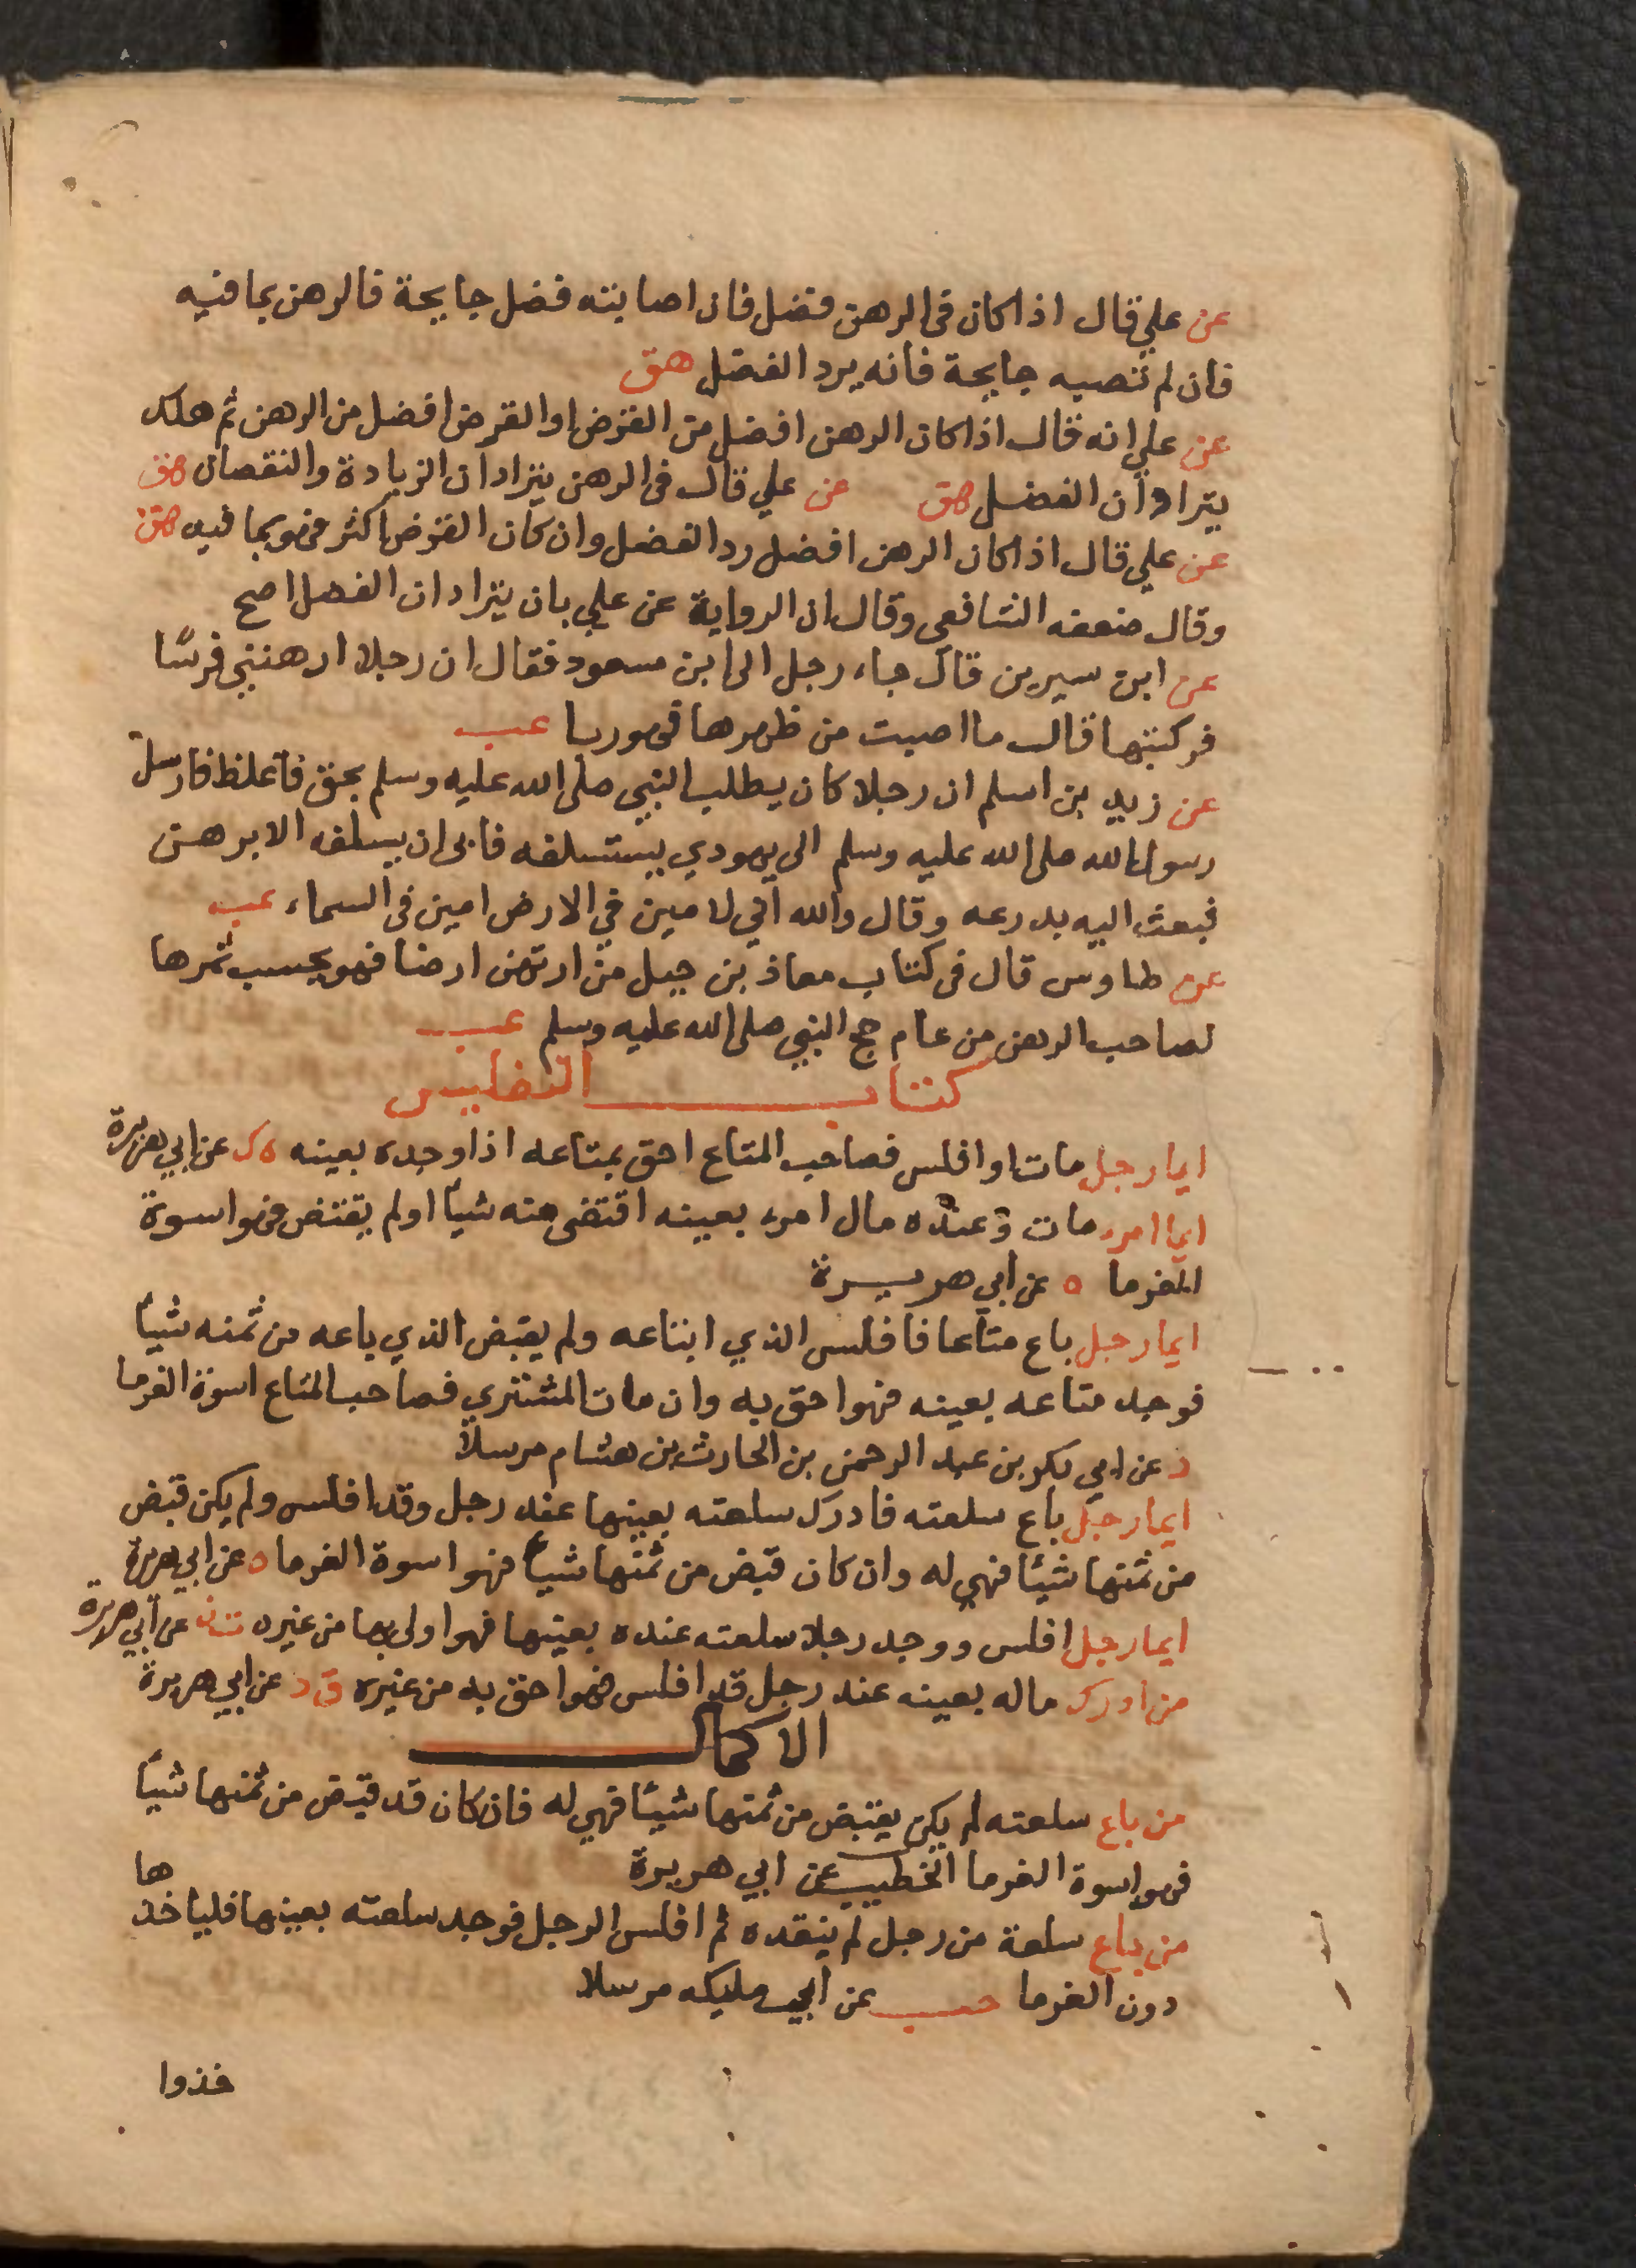 عن علي قال اذا كان في الرهن فضل فان اصابته فضل جايحة فالرهن بما فيه
فان لم تصبه جايحة فانه يرد الفضل هق
عن علي انه قال اذا كان الرهن افضل من القرض او القرض افضل من الرهن ثم هلك
يترادان الفضل هق عن علي قال في الرهن يترادان الزيادة والنقصان هق
عن علي قال اذا كان الرهن افضل رد الفضل وان كان القرض اكثر فهو بما فيه هق
وقال ضعفه الشافعي وقال ان الرواية عن علي بان يترادان الفضل اصح
عن ابن سيرين قال جاء رجل الى ابن مسعود فقال ان رجلا ارهنني فرسًا
فركبتها قال ما اصبت من ظهرها فهو ربا عب
عن زيد بن اسلم ان رجلا كان يطلب النبي صلى الله عليه وسلم بحق فاغلظ فارسل
رسول الله صلى الله عليه وسلم الى يهودي يستسلفه فابى ان يسلفه الا برهن
فبعث اليه بدرعه وقال والله اني لامين في الارض امين في السماء عب
عن طاوس قال في كتاب معاذ بن جبل من ارتهن ارضا فهو يحسب ثمرها
لصاحب الرهن من عام حج النبي صلى الله عليه وسلم عب
كتاب التفليس
ايما رجل مات او افلس فصاحب المتاع احق بمتاعه اذا وجده بعينه ه ك عن ابي هريرة
ايما امرء مات وعنده مال امرء بعينه اقتضى منه شيأ او لم يقتض فهو اسوة
للغرما ه عن ابي هريرة
ايما رجل باع متاعا فافلس الذي ابتاعه ولم يقبض الذي باعه من ثمنه شيأ
فوجد متاعه بعينه فهو احق به وان مات المشتري فصاحب المتاع اسوة الغرما
د عن ابي بكر بن عبد الرحمن بن الحارث بن هشام مرسلا
ايما رجل باع سلعته فادرك سلعته بعينها عند رجل وقد افلس ولم يكن قبض
من ثمنها شيئًا فهي له وان كان قبض من ثمنها شيأ فهو اسوة الغرما ه عن ابي هريرة
ايما رجل افلس ووجد رجلا سلعته عنده بعينها فهو اولى بها من غيره ت ن عن ابي هريرة
من ادرك ماله بعينه عند رجل قد افلس فهو احق به من غيره ق د عن ابي هريرة
الاكمال
من باع سلعته لم يكن يقتبض من ثمنها شيئًا فهي له فان كان قد قبض من ثمنها شيأ
فهو اسوة الغرما الخطيب عن ابي هريرة
من باع سلعة من رجل لم ينقده ثم افلس الرجل فوجد سلعته بعينها فلياخذها
دون الغرما حب عن ابي مليكه مرسلا
خذوا